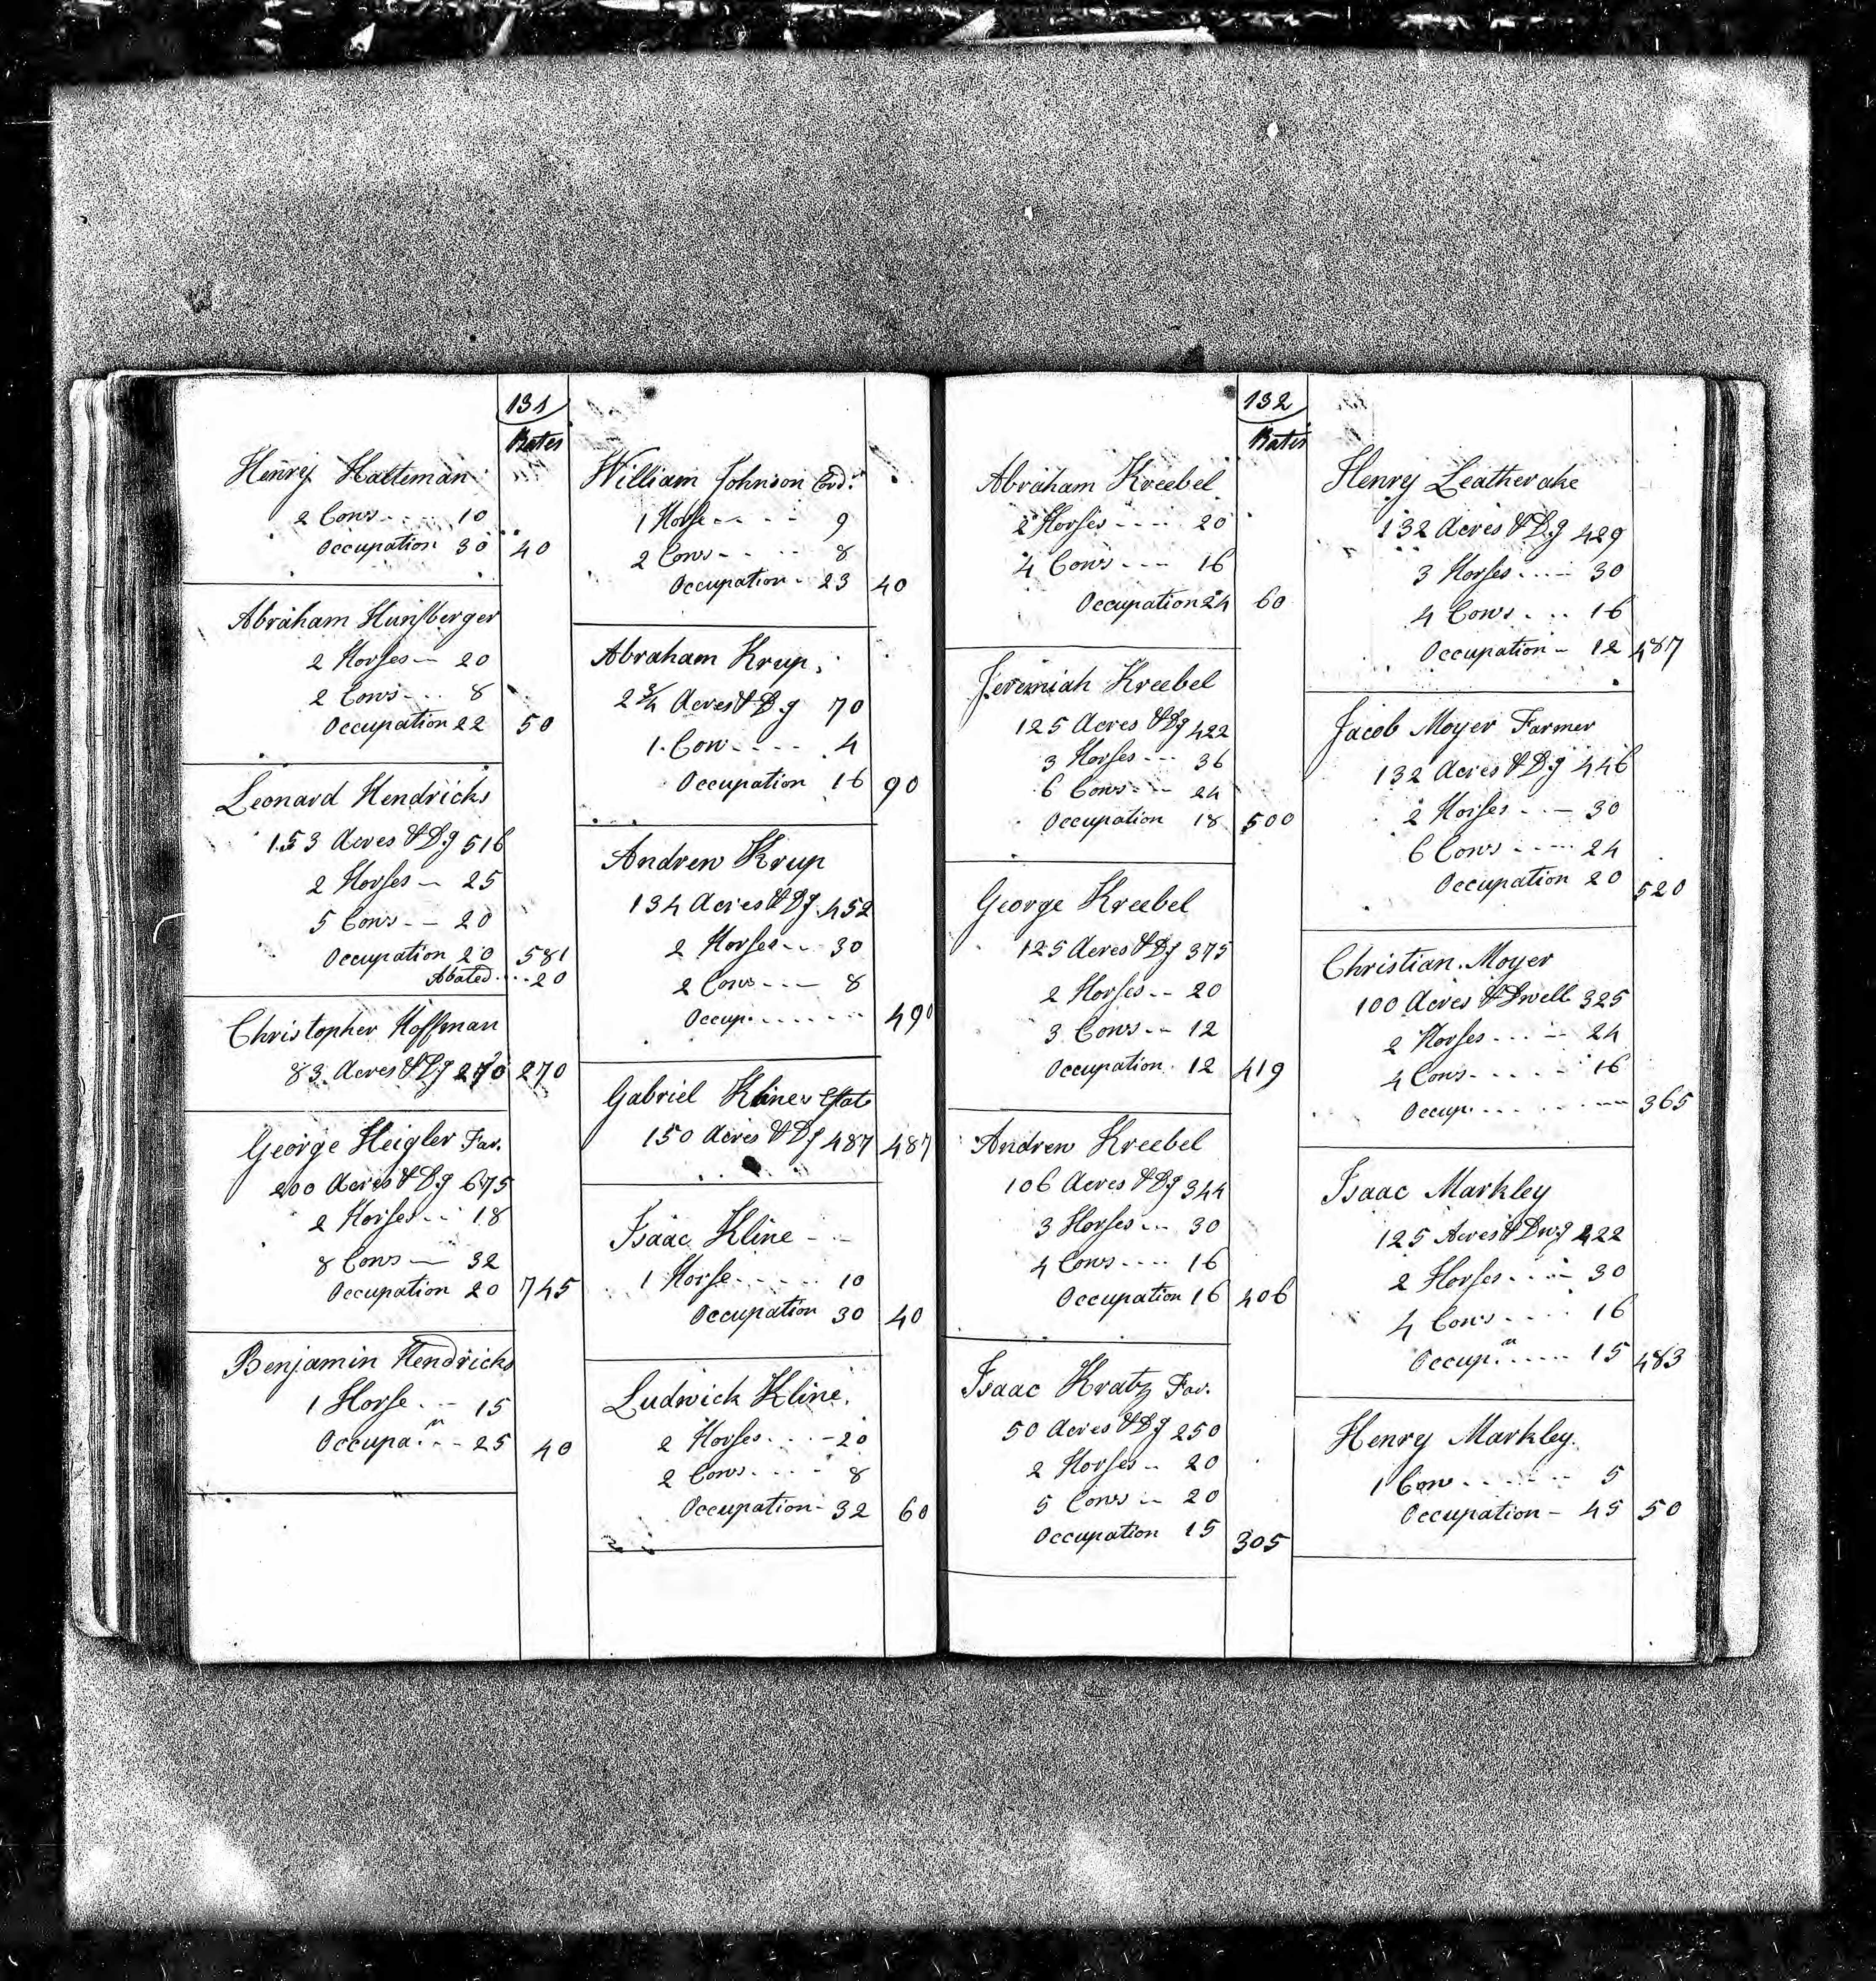 131
Rates
Henry Halteman
2 Cows 10
Occupation 30 40
Abraham Hunsberger
2 Horses 20
2 Cows 8
Occupation 22 50
Leonard Hendricks
153 Acres & Dg 516
2 Horses 25
5 Cows 20
Occupation 20 581
Abated 20
Christopher Hoffman
83 Acres & Dg 270 270
George Heigler Far.
200 Acres & Dg 675
2 Horses 18
8 Cows 32
Occupation 20 745
Benjamin Hendricks
1 Horse 15
Occupa.n 25 40
William Johnson
1 Horse 9
2 Cows 8
Occupation 23 40
Abraham Krup
2 3/4 Acres & Dg 70
1 Cow 4
Occupation 16 90
Andrew Krup
134 Acres & Dg 452
2 Horses 30
2 Cows 8
Occup. 490
Gabriel Klines Estate
150 Acres & Dg 487 487
Isaac Kline
1 Horse 10
Occupation 30 40
Ludwick Kline
2 Horses 20
2 Cows 8
Occupation 32 60
132
Rates
Abraham Kreebel
2 Horses 20
4 Cows 16
Occupation 24 60
Jeremiah Kreebel
125 Acres & Dg 422
3 Horses 36
6 Cows 24
Occupation 18 500
George Kreebel
125 Acres & Dg 375
2 Horses 20
3 Cows 12
Occupation 12 419
Andrew Kreebel
106 Acres & Dg 344
3 Horses 30
4 Cows 16
Occupation 16 406
Isaac Kratz Far.
50 Acres & Dg 250
2 Horses 20
5 Cows 20
Occupation 15 305
Henry Leatherake
132 Acres & Dg 429
3 Horses 30
4 Cows 16
Occupation 12 487
Jacob Moyer Farmer
132 Acres & Dg 446
2 Horses 30
6 Cows 24
Occupation 20 520
Christian Moyer
100 Acres & Dwell 325
2 Horses 24
4 Cows 16
Occup. 365
Isaac Markley
125 Acres & Dwg 422
2 Horses 30
4 Cows 16
Occup.n 15 483
Henry Markley
1 Cow 5
Occupation 45 50